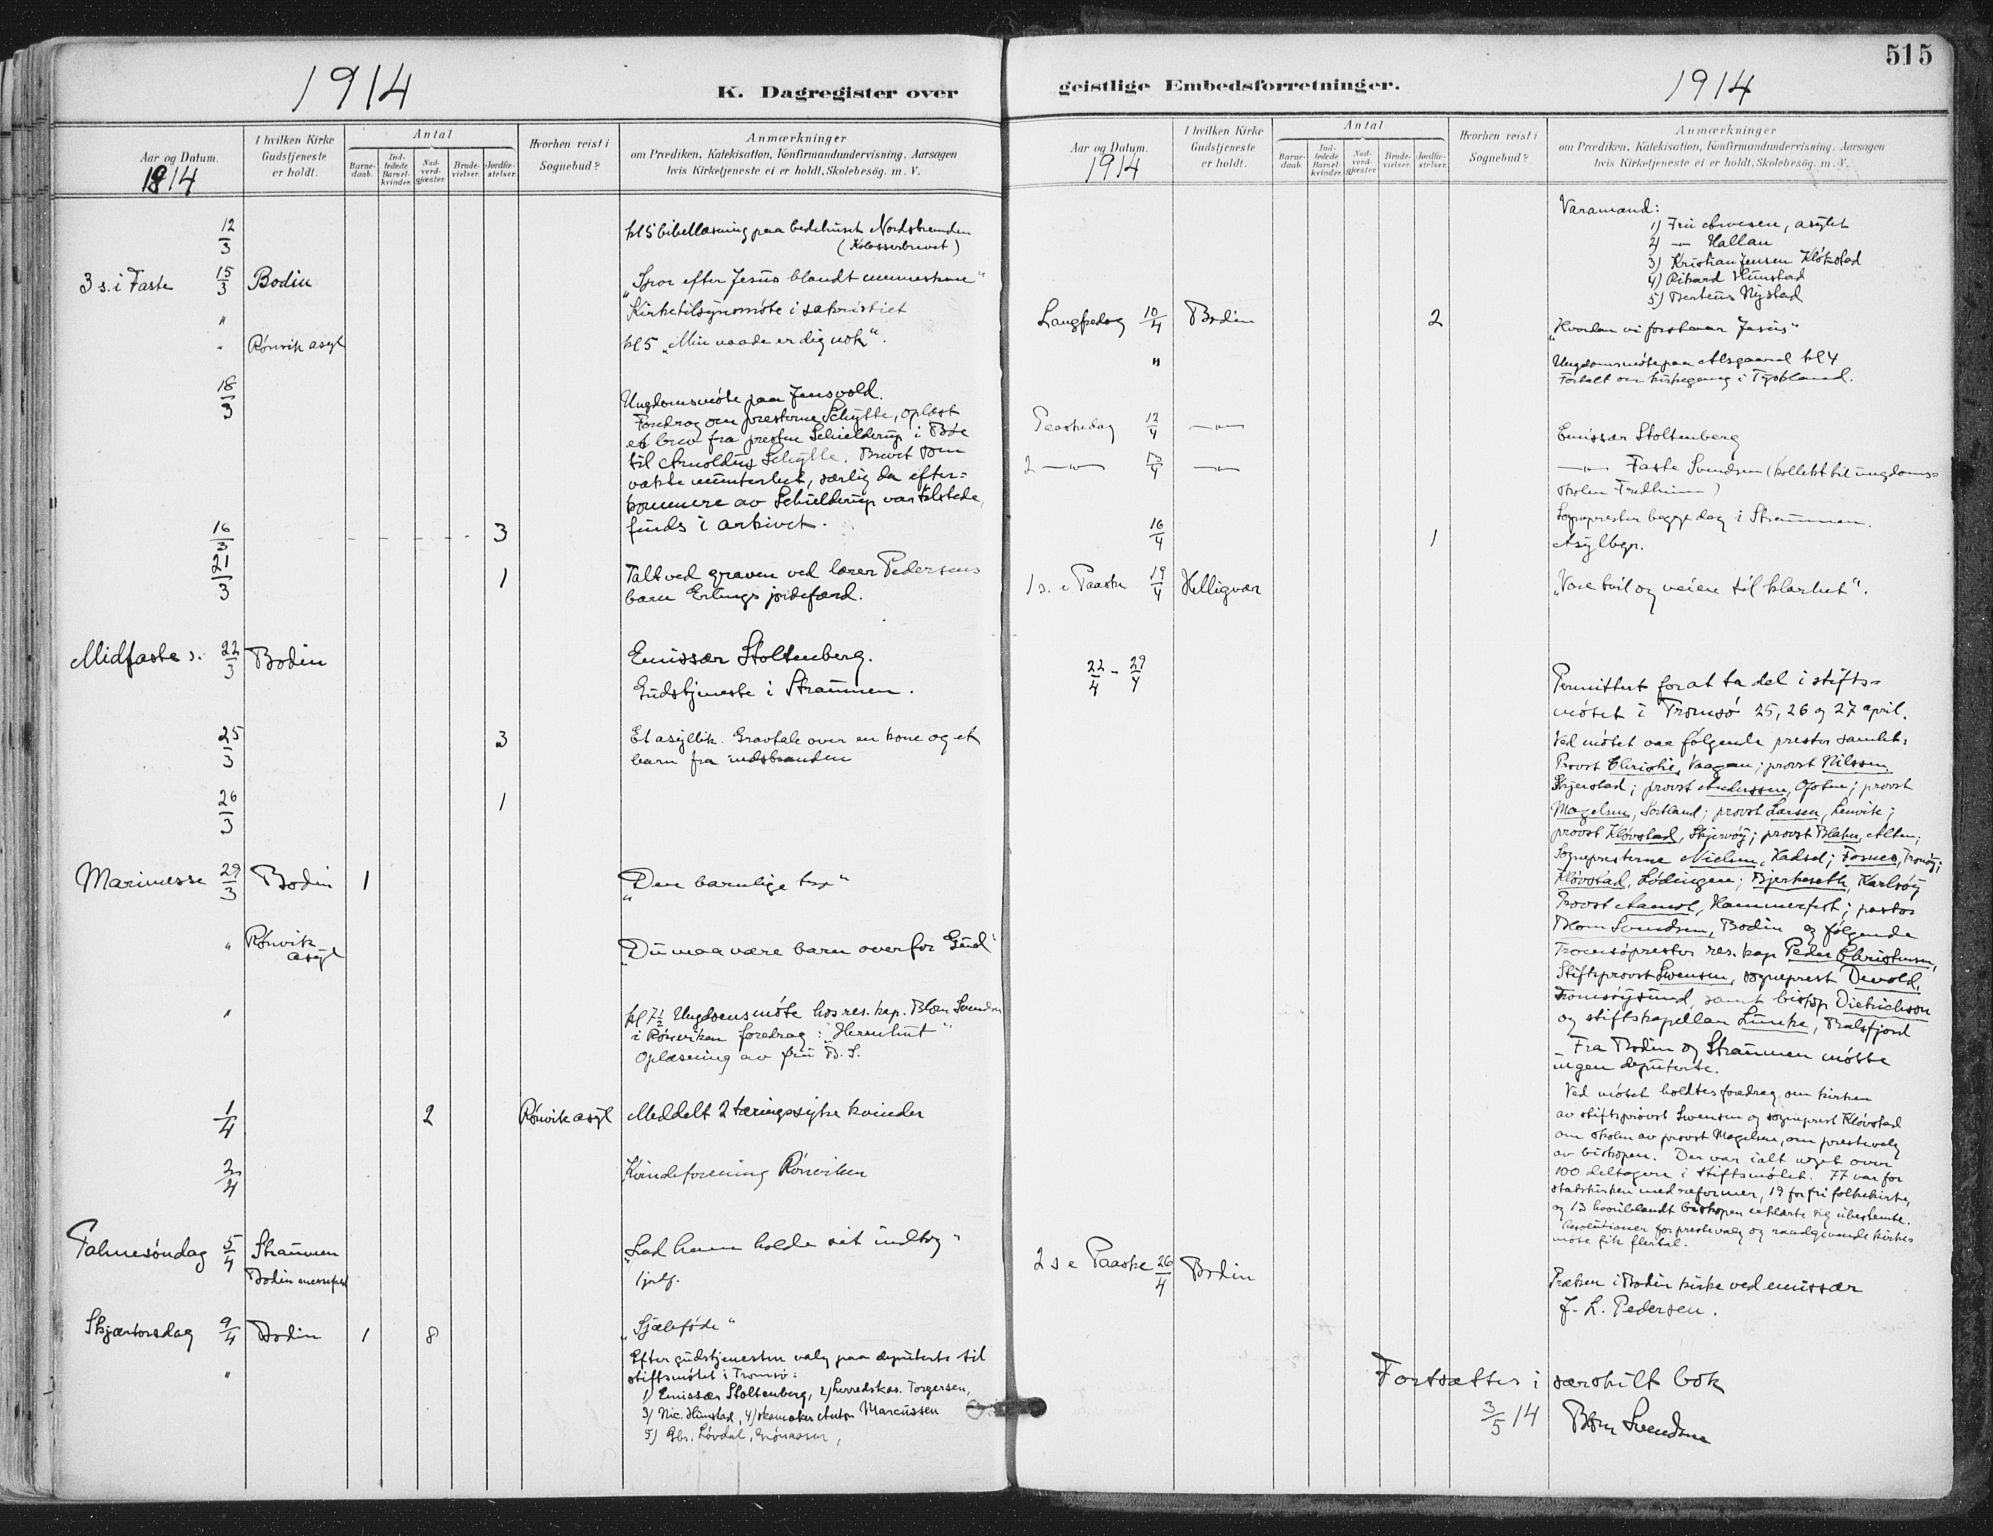 1914
K. Dagregister over
Aar og Datum.
1914
I hvilken Kirke
Gudstjeneste
er holdt.
Antal
Barne-
daab.
Ind-
ledede
Barsel-
kvinder.
Nad-
verd-
gjæster.
Brude-
vielser.
Jordfæ-
stelser.
Hvorhen reist i
Sognebud?
Anmærkninger
om Prædiken, Katekisation, Konfirmandundervisning. Aarsagen
hvis Kirketjeneste ei er holdt, Skolebesög. m. V.
12/3 kl 5 bibellæsning paa bedehuset Nordstranden
(Kolosserbrevet)
3 s. i Faste 15/3 Bodin „Spor efter Jesus blandt menneskene“
" Kirketilsynsmøte i sakristiet
" Rønvik asyl kl 5 „Min naade er dig nok“.
18/3 Ungdomsmøte paa Jensvold.
Foredrag om presterne Schytte, oplæst
et brev fra presten Schielderup i Bøe
til Arnoldus Schytte. Brevet som
vakte munterhet, særlig da efter=
kommere av Schielderup var tilstede,
finds i arkivet.
16/3 3
21/3 1 Talt ved graven ved lærer Pedersens
barn Erlings jordefærd.
Midfaste s. 22/3 Bodin Emissær Stoltenberg.
Gudstjeneste i Straumen.
25/3 3 Et asyllik. Gravtale over en kone og et
barn fra
26/3 1
Marimesse 29/3 Bodin 1 „Den barnlige tro“
" Rønvik
asyl „Du maa være barn overfor Gud“
" kl 7½ Ungdomsmøte hos res. kap. Blom Svendsen
i Rønviken foredrag: „Hernhut“
Oplæsning av fru B. S.
1/4 2 Rønvik asyl Meddelt 2 tæringssyke kvinder
2/4 Kvindeforening Rønviken
Palmesøndag 5/4 Straumen „Lad ham holde sit indtog“
Bodin messefald 1 jordf.
Skjærtorsdag 9/4 Bodin 1 8 „Sjæleføde“
" Efter gudstjenesten valg paa deputerte til
stiftsmøtet i Tromsø:
1) Emissær Stoltenberg, 2) herredskas. Torgersen,
3) Nic. Hunstad, 4) skomaker Anton Marcussen
5) Løvdal,
515
geistlige Embedsforretninger.
1914
Aar og Datum.
1914
I hvilken Kirke
Gudstjeneste
er holdt.
Antal
Barne-
daab.
Ind-
ledede
Barsel-
kvinder.
Nad-
verd-
gjæster.
Brude-
vielser.
Jordfæ-
stelser.
Hvorhen reist i
Sognebud?
Anmærkninger
om Prædiken, Katekisation, Konfirmandundervisning. Aarsagen
hvis Kirketjeneste ei er holdt. Skolebesög. m. V.
Varamænd:
1) Fru Arnesen, asylet
2) — Hallan
3) Kristian Jensen Kløkstad
4) Rikard Hunstad
5) Berteus Nystad
Langfredag 10/4 Bodin 2 „Hvordan vi forstaar Jesus“
" Ungdomsmøte paa Alsgaard kl 4
Fortalt om kirkegang i Tyskland.
Paaskedag 12/4 —"— Emissær Stoltenberg
2 —"— 13/4 —"— —"— Faste Svendsen (kollekt til ungdoms=
skolen Fredheim)
Sognepresten begge dag i Straumen.
16/4 1 Asylbgr.
1 s. e Paaske 19/4 Helligvær „Vore tvil og veien til klarhet“.
22/4 - 29/4 Permittert for at ta del i stifts=
møtet i Tromsø 25, 26 og 27 april.
Ved møtet var følgende prester samlet:
Provst Christie, Vaagan; provst Nilssen,
Skjerstad; provst Anderssen, Ofoten; provst
Magelsen, Sortland; provst Larsen, Lenvik;
provst Kløvstad, Skjervøy; provst Alten;
Sognepresterne Nielsen, Hadsel; Fosnes, Tranøy;
Kløvstad, Lødingen; Bjerkeseth, Karlsøy
Provst Aanest, Hammerfest; pastor
Blom Svendsen, Bodin og følgende
Tromsøprester res. kap. Peder Christensen,
Stiftsprovst Swensen, sogneprest Devold,
Tromsøysund, samt biskop Dietrichson
og stiftskapellan Lunke, Balsfjord
Fra Bodin og Straumen møtte
ingen deputerte.
Ved møtet holdtes foredrag om kirken
av stiftsprovst Swensen og sogneprest Kløvstad
om skolen av provst Magelsen, om prestevalg
av biskopen. Der var ialt noget over
100 deltagere i stiftsmøtet. 77 var for
statskirken med reformer, 19 for fri folkekirke,
og 13 hvoriblandt biskopen erklærte sig ubestemte.
Resolutioner for prestevalg og raadgivende kirke=
møte fik flertal.
2 s e Paaske 26/4 Bodin Præken i Bodin kirke ved emissær
J. L. Pedersen.
Fortsættes i særskilt bok
3/5 14 Blom Svendsen